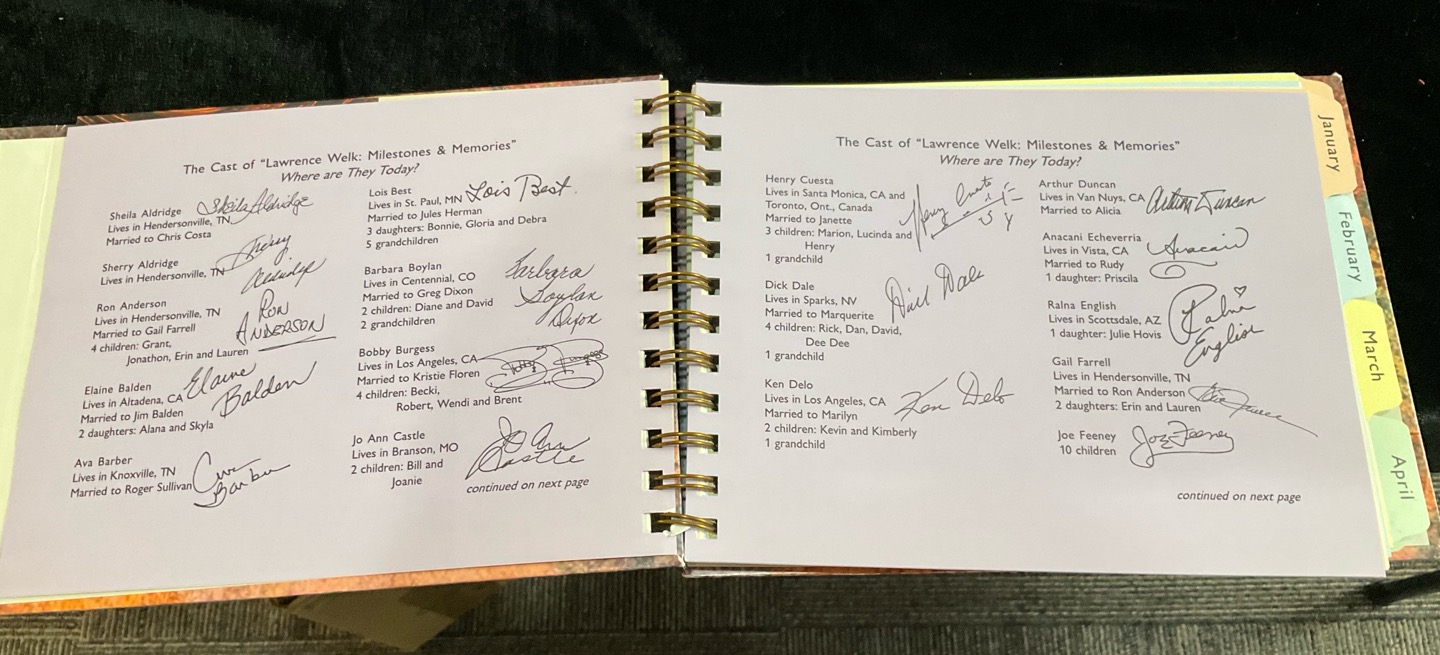 The Cast of "Lawrence Welk: Milestones & Memories"
Where are They Today?
Sheila Aldridge
Lives in Hendersonville, TN
Married to Chris Costa
Sheila Aldridge
Sherry Aldridge
Lives in Hendersonville, TN
Sherry
Aldridge
Ron Anderson
Lives in Hendersonville, TN
Married to Gail Farrell
4 children: Grant,
Jonathon, Erin and Lauren
Ron
Anderson
Elaine Balden
Lives in Altadena, CA
Married to Jim Balden
2 daughters: Alana and Skyla
Elaine
Balden
Ava Barber
Lives in Knoxville, TN
Married to Roger Sullivan
Ava
Barber
Lois Best
Lives in St. Paul, MN
Married to Jules Herman
3 daughters: Bonnie, Gloria and Debra
5 grandchildren
Lois Best
Barbara Boylan
Lives in Centennial, CO
Married to Greg Dixon
2 children: Diane and David
2 grandchildren
Barbara
Boylan
Dixon
Bobby Burgess
Lives in Los Angeles, CA
Married to Kristie Floren
4 children: Becki,
Robert, Wendi and Brent
Bobby Burgess
Jo Ann Castle
Lives in Branson, MO
2 children: Bill and
Joanie
Jo Ann
Castle
continued on next page
The Cast of "Lawrence Welk: Milestones & Memories"
Where are They Today?
Henry Cuesta
Lives in Santa Monica, CA and
Toronto, Ont., Canada
Married to Janette
3 children: Marion, Lucinda and
Henry
1 grandchild
Henry Cuesta
Dick Dale
Lives in Sparks, NV
Married to Marquerite
4 children: Rick, Dan, David,
Dee Dee
1 grandchild
Dick Dale
Ken Delo
Lives in Los Angeles, CA
Married to Marilyn
2 children: Kevin and Kimberly
1 grandchild
Ken Delo
Arthur Duncan
Lives in Van Nuys, CA
Married to Alicia
Arthur Duncan
Anacani Echeverria
Lives in Vista, CA
Married to Rudy
1 daughter: Priscila
Anacani
Ralna English
Lives in Scottsdale, AZ
1 daughter: Julie Hovis
Ralna
English
Gail Farrell
Lives in Hendersonville, TN
Married to Ron Anderson
2 daughters: Erin and Lauren
Joe Feeney
10 children
Joe Feeney
continued on next page
January
February
March
April